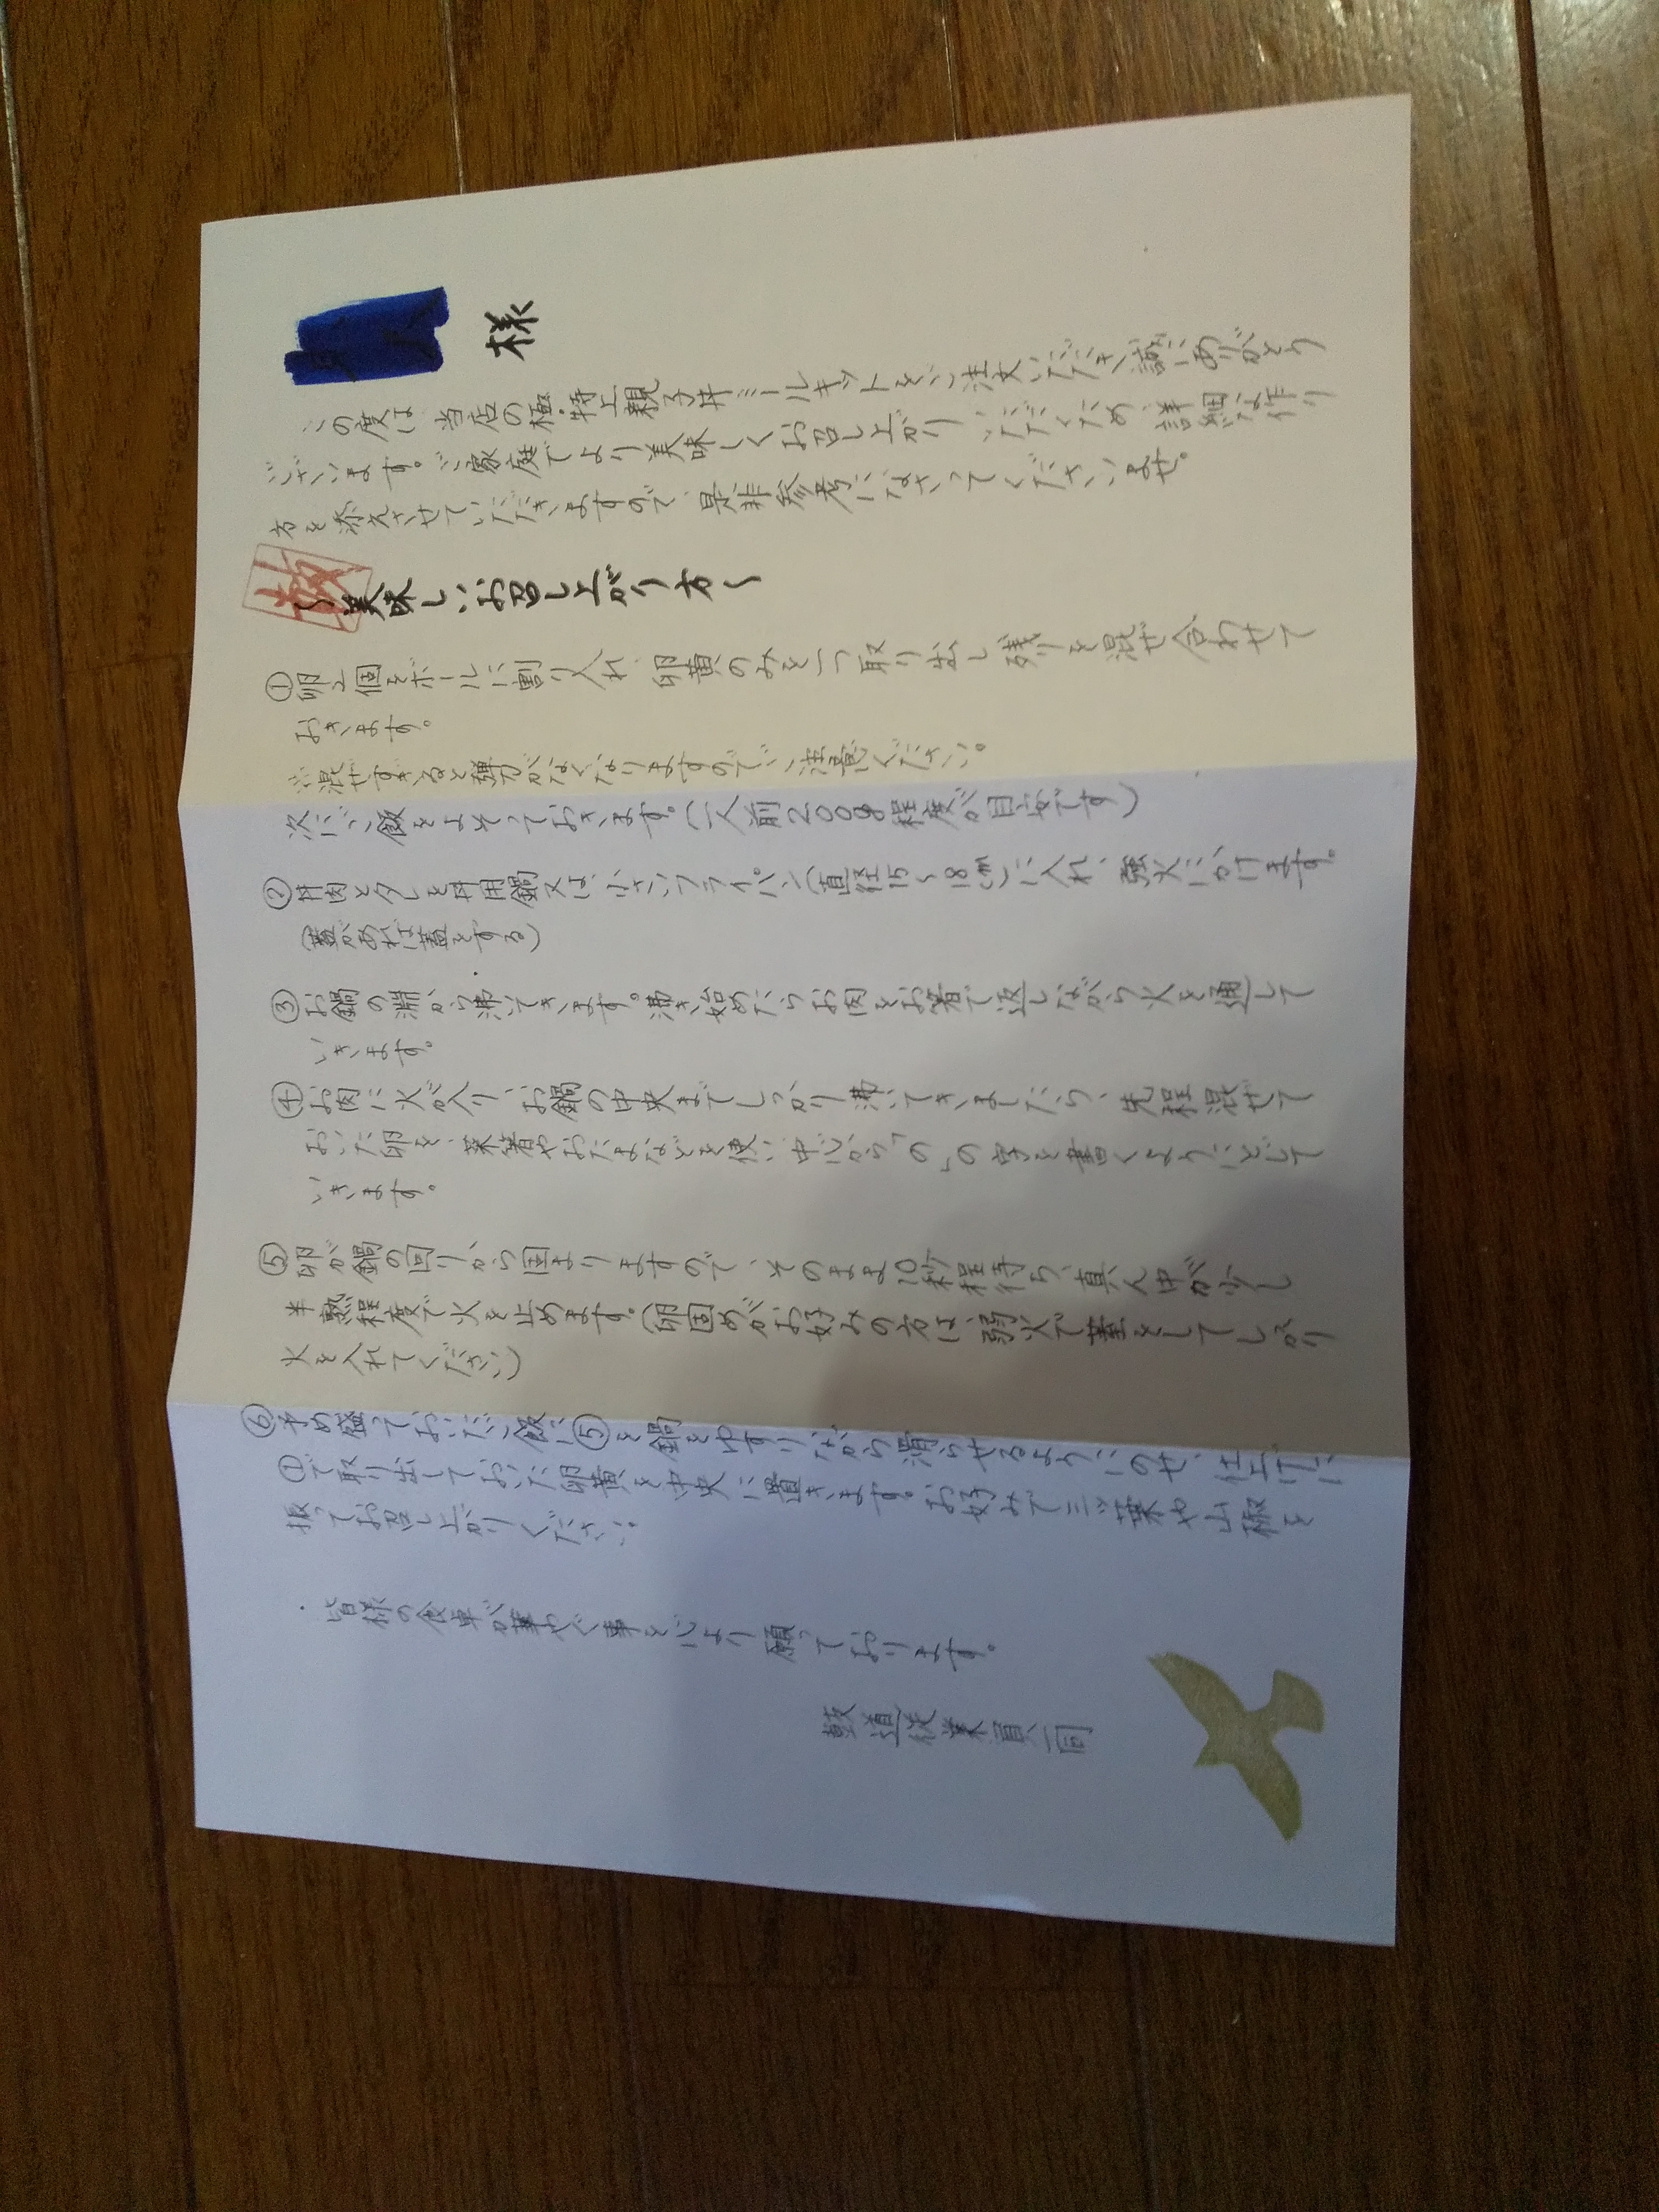 様
この度は、当店の極・特上親子丼ミールキットをご注文いただき、誠にありがとう
ございます。ご家庭でより美味しくお召し上がりいただくため、詳細な作り
方を添えさせていただきますので、是非参考になさってくださいませ。
〜美味しいお召し上がり方〜
①卵2個をボールに割り入れ、卵黄のみを一つ取り出し残りを混ぜ合わせて
おきます。
※混ぜすぎると弾力がなくなりますのでご注意ください。
次にご飯をよそっておきます。(一人前200g程度が目安です)
②丼肉とタレを丼用鍋又は、小さいフライパン(直径15〜18cm)に入れ、強火にかけます。
(蓋があれば蓋をする)
③お鍋の淵から沸いてきます。沸き始めたらお肉をお箸で返しながら火を通して
いきます。
④お肉に火が入り、お鍋の中央までしっかり沸いてきましたら、先程混ぜて
おいた卵を、菜箸やおたまなどを使い中心から「の」の字を書くようにとじて
いきます。
⑤卵が鍋の回りから固まりますので、そのまま10秒程待ち、真ん中が少し
半熟程度で火を止めます。(卵固めがお好みの方は、弱火で蓋をしてしっかり
火を入れてください)
⑥予め盛っておいたご飯に⑤を鍋をゆすりながら滑らせるようにのせ、仕上げに
①で取り出しておいた卵黄を中央に置きます。お好みで三ツ葉や山椒を
振ってお召し上がりください。
皆様の食卓が華やぐ事を心より願っております。
鼓道従業員一同